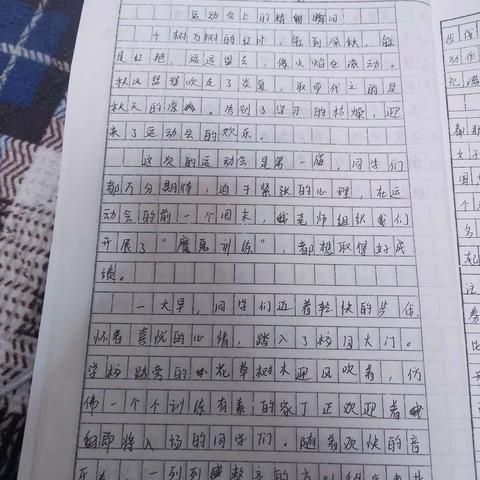 运动会上的精彩瞬间
千树万树的红叶，愈到深秋，愈
是红艳，远远望去，像火焰在滚动。
秋风瑟瑟吹走了炎夏，取而代之的是
秋天的凉爽。告别了学习的枯燥，迎
来了运动会的欢乐。
这次的运动会是第一届，同学们
都万分期待，迫于紧张的心理，在运
动会的前一个周末，老师组织我们
开展了“魔鬼训练”，都想取得好成
绩。
一大早，同学们迈着轻快的步伐，
怀着喜悦的心情，踏入了校园大门。
学校路旁的花草树木迎风吹着，仿
佛一个个训练有素的家丁正欢迎着
即将入场的同学们。随着欢快的音
乐声，一列列整齐的方
步伐
动作